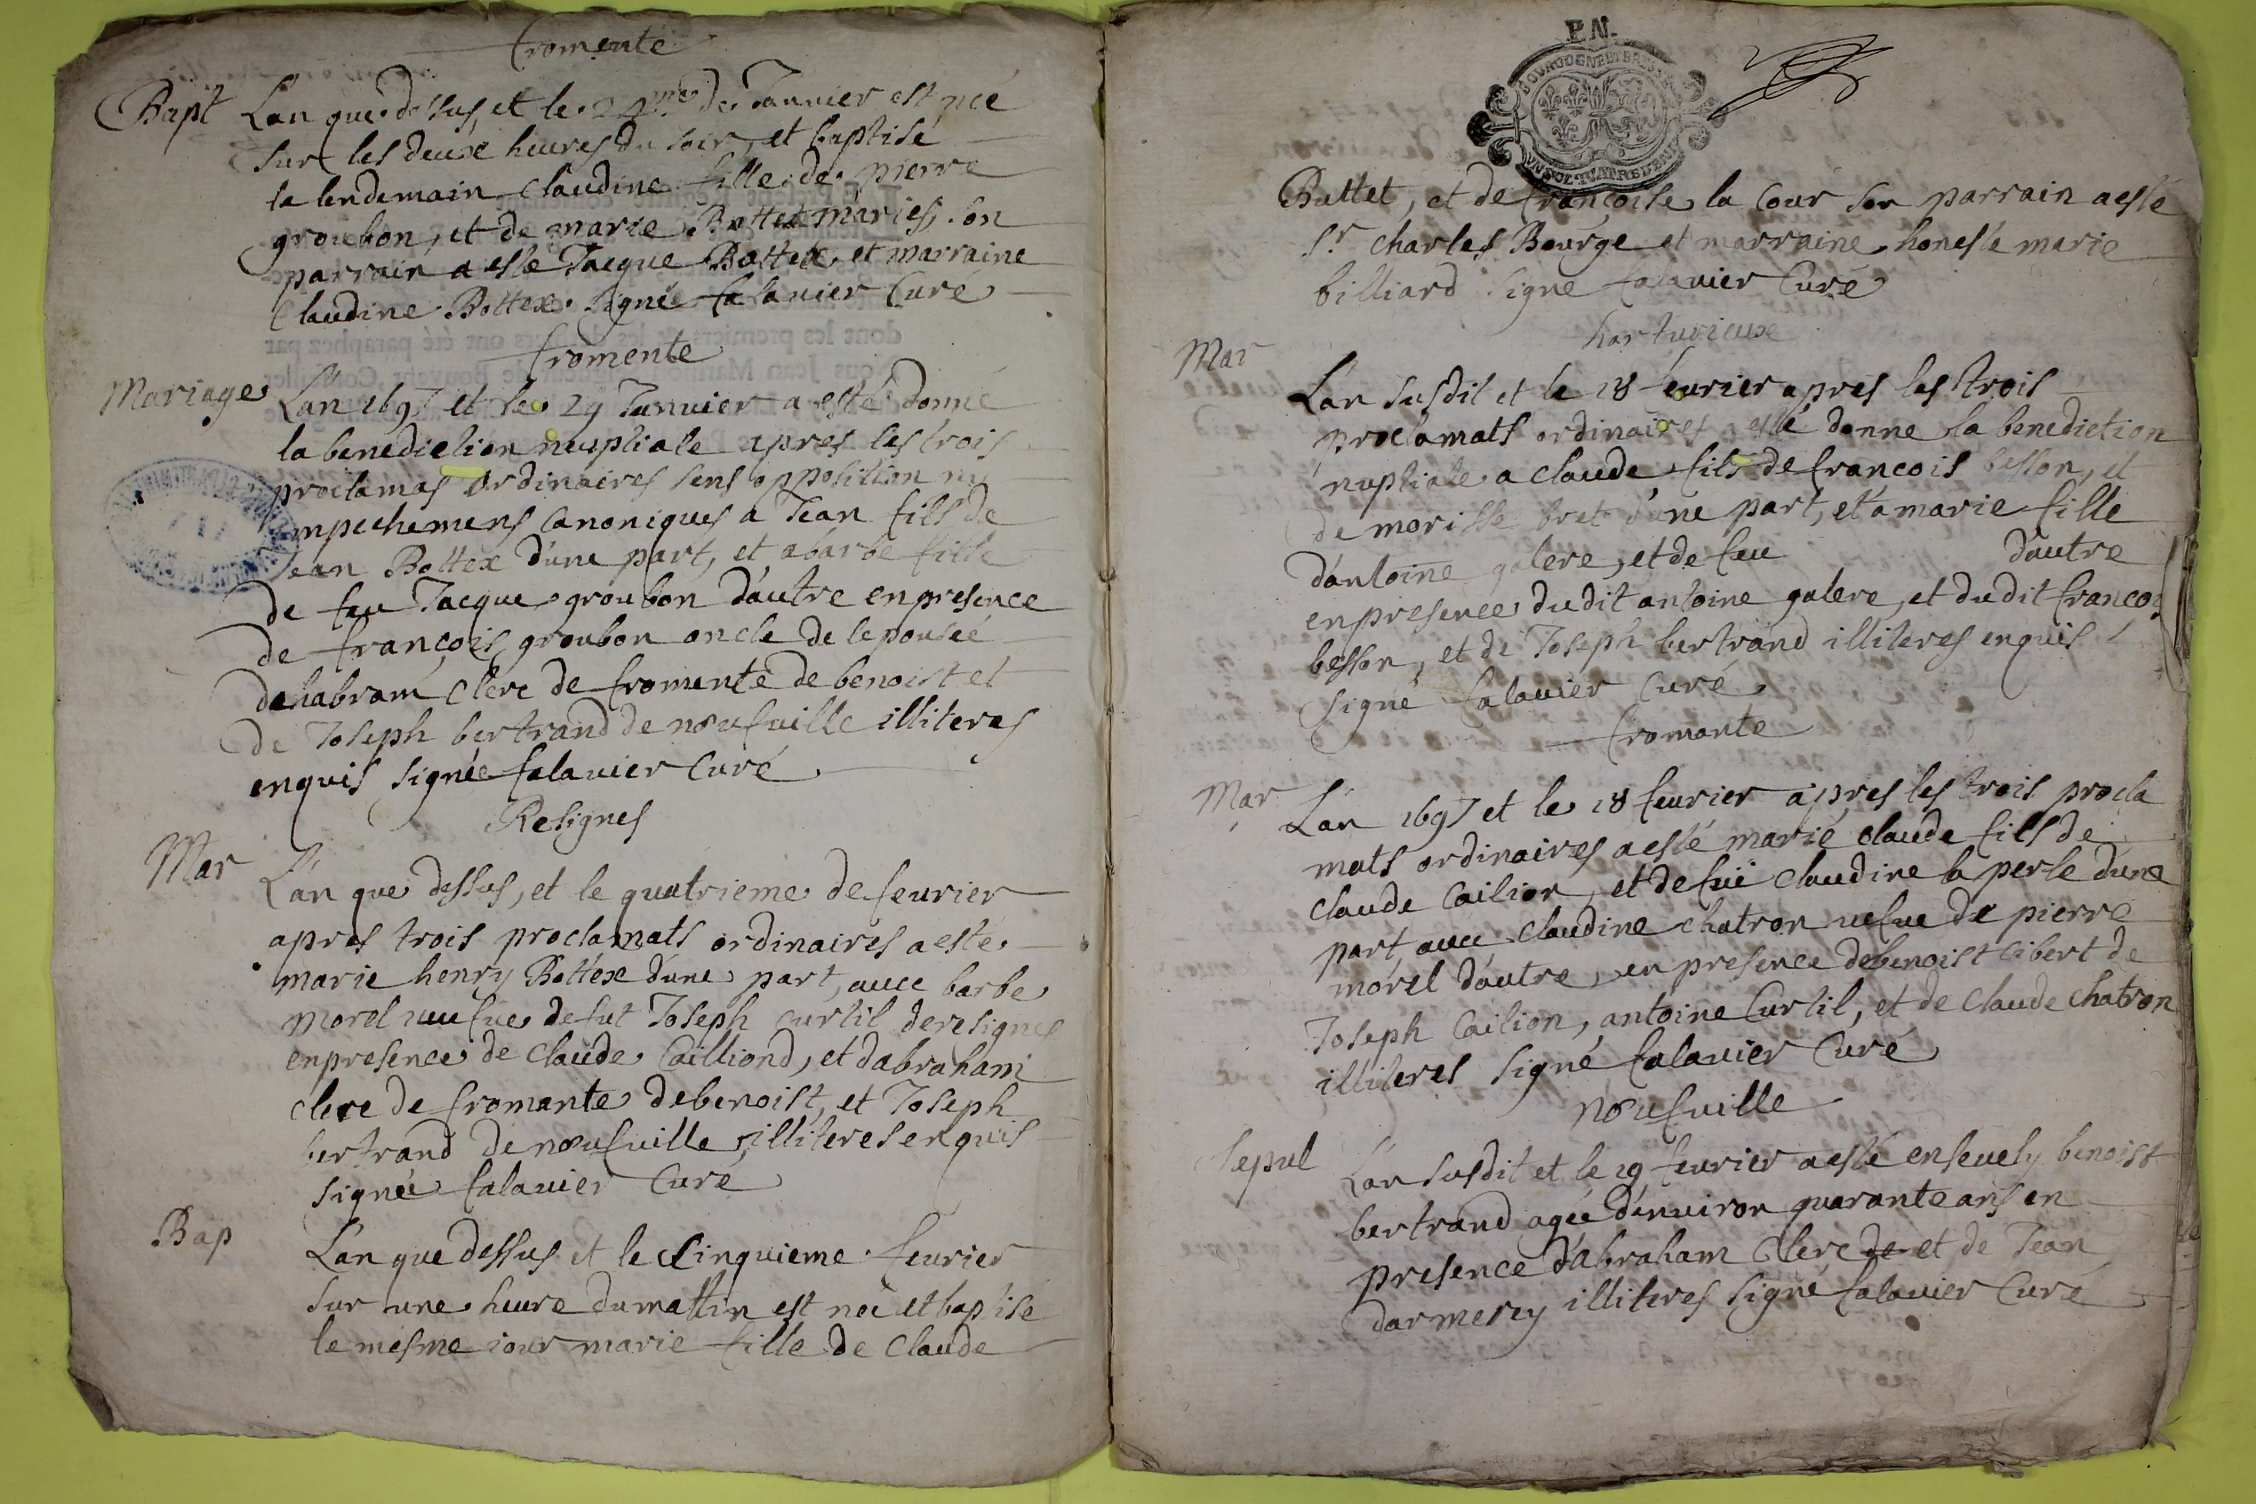 fromente
Bapt L'an que dessus, et le 24me de Januier est neé
sur les deux heures du soir, et baptisé
le lendemain claudine fille de pierre
groubon, et de marie Bottex mariés, son
parrain a esté Jacque Bottex et marraine
Claudine Bottex signé falauier Curé
fromente
Mariage L'an 1697 et le 29 Januier a esté donné
la benediction nuptiale apres les trois
proclamas ordinaires sens opposition ny
empechemens canoniques a Jean fils de
Jean Bottex d'une part, et a barbe fille
de feu Jacque groubon d'autre en presence
de françois groubon oncle de lepouseé
dehabram clerc de fromente de benoist et
de Joseph bertrand de noufuille illiteres
enquis signée falauier Curé
Resignes
Mar L'an que dessus, et le quatrieme de feurier
apres trois proclamats ordinaires a esté
marie henry Bottex d'une part, auec barbe
morel ueufue de fut Joseph curtil de resignes
en presence de claude Cailliond, et dabraham
clerc de fromante de benoist, et Joseph
bertrand de noufuille illiteres enquis
signée falauier Curé
Bap L'an que dessus et le Cinquieme feurier
sur une heure du mattin est neé et baptisé
le mesme iour marie fille de claude
P.N.
BOURGOGNE ET BRESSE
UN SOL QUATRE DEN
Buttet, et de francoise la Cour son parrain a esté
Sr charles Bourge et marraine honeste marie
billiard signé falauier Curé
horturieux
Mar L'an susdit et le 18 feurier apres les trois
proclamats ordinaires a esté donne la benediction
nuptiale a claude fils de francois besson, et
de morisse bret d'une part, et a marie fille
d'antoine galere, et de feu d'autre
en presence dudit antoine galere, et dudit francois
besson, et de Joseph bertrand illiteres enquis
signé falauier Curé
fromante
Mar L'an 1697 et le 18 feurier apres les trois procla
mats ordinaires a esté marié claude fils de
claude Cailion, et de fuë claudine la perle d'une
part, auec claudine chatron uefue de pierre
morel d'autre, en presence de benoist libert de
Joseph Cailion, antoine Curtil, et de claude chatron
illiteres signé falauier Curé
noufuille
Sepul L'an susdit et le 19 feurier a esté enseuely benoist
bertrand ageé d'enuiron quarante ans en
presence d'abraham clerc de et de Jean
darmency illiteres signé falauier Curé